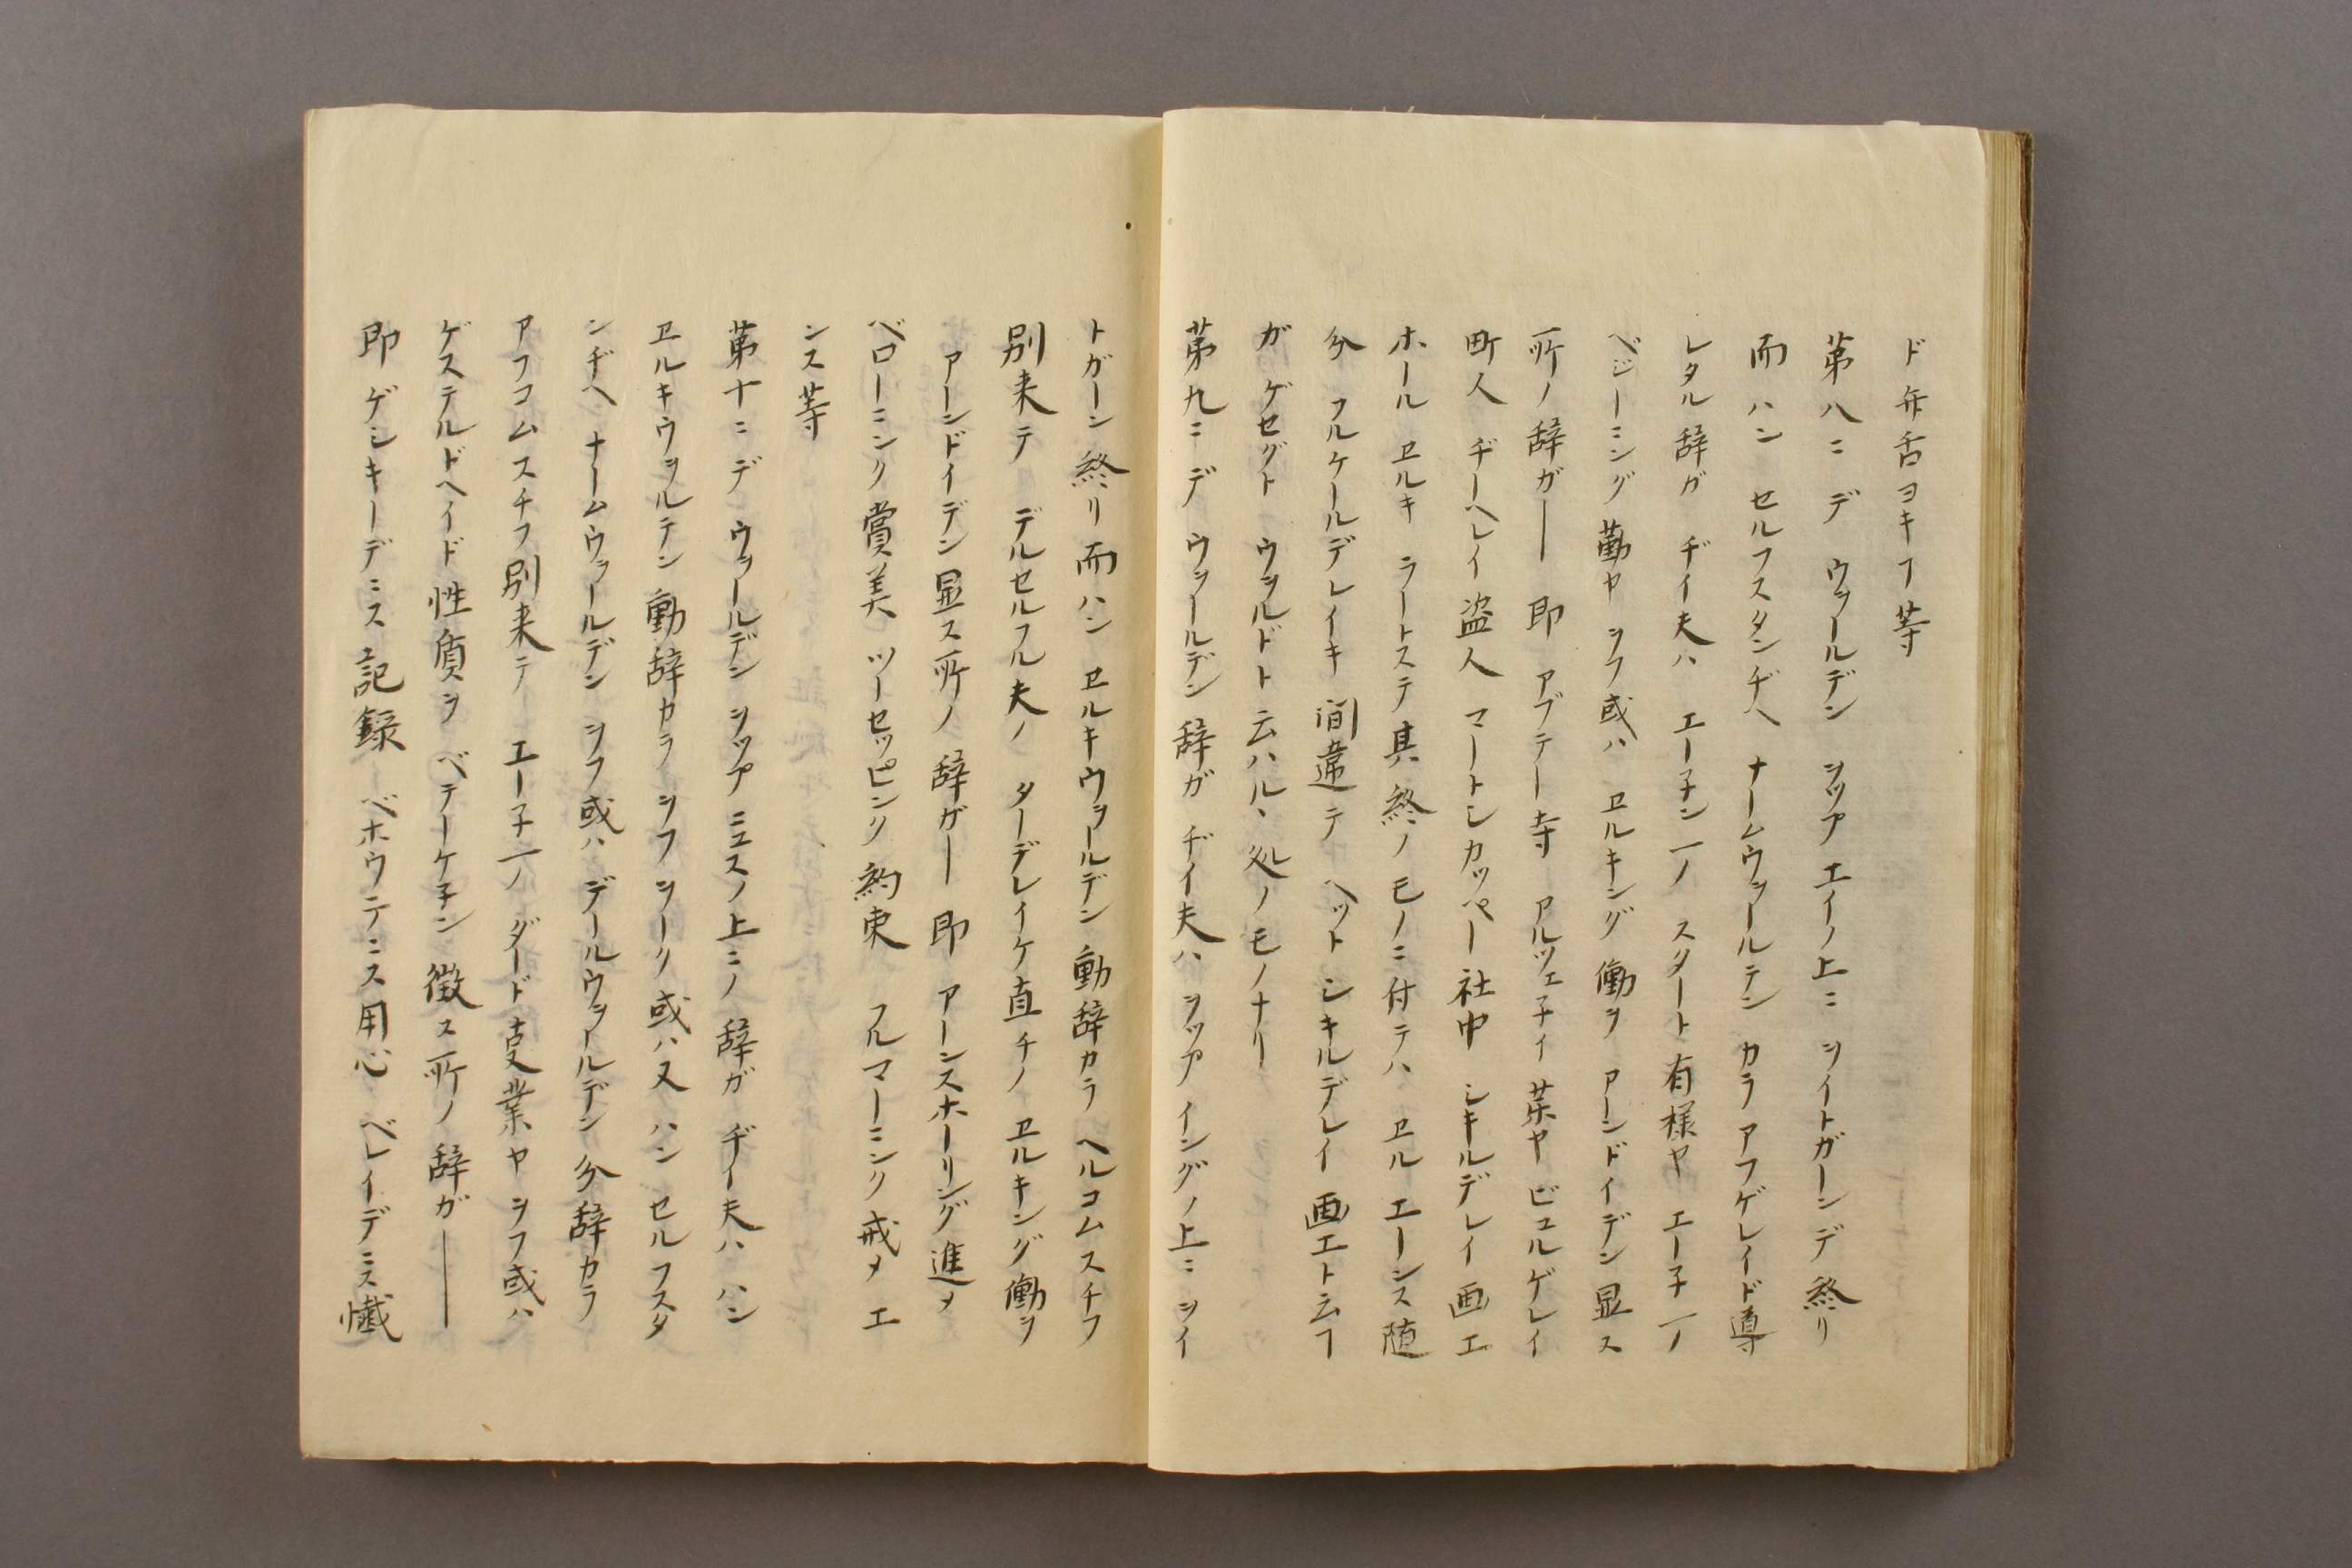 ド 弁舌ヨキヿ等
第八ニ デ ウヲールデン ヲップ エイノ上ニ ヲイトガーンデ 終リ
而 ハン セルフスタンヂヘ ナームウヲールテン カラ アフゲレイド導
レタル 辞ガ ヂイ夫ハ エーチン一ノ スタート有様ヤ エーチ一ノ
ベジーニング 勤ヤ ヲフ或ハ ヱルキング 働ヲ アーンドイデン 显ス
所ノ 辞ガ── 即 アブテー寺 アルツェチイ 葉ヤ ビュルゲレイ
町人 ヂーヘレイ 盗人 マートシカッペー 社中 シキルデレイ 画エ
ホール ヱルキ ラートステ 其終ノモノニ付テハ ヱル エーンス 随
分 フルケールデレイキ 間違テ ヘット シキルデレイ 画エト云フ
ガ ゲセグト ウヲルドト 云ハル、処ノモノナリ
第九ニ デ ウヲールデン 辞ガ ヂイ夫ハ ヲップ イングノ上ニ ヲイ
トガーン 終リ 而 ハン ヱルキウヲールデン 動辞カラ ヘルコムスチフ
別来テ デルセルフル夫ノ ターデレイケ直チノ ヱルキング 働ヲ
アーンドイデン 显ス所ノ 辞ガ─ 即 アーンスホーリング 進メ
ベローニンク 賞美 ツーセッピンク 約束 フルマーニンク 戒メ エ
ンス等
第十ニ デ ウヲールデン ヲップ ニュスノ上ニノ 辞ガ ヂイ夫ハ ハン
ヱルキウヲルテン 動辞カラ ヲフ ヲーク 或ハ又 ハン セルフスタ
ンヂヘ ナームウヲールデン ヲフ或ハ デールウヲールデン 分辞カラ
アフコムスチフ 別来テ エーチ一ノ ダード 支業ヤ ヲフ或ハ
ゲステルドヘイド 性質ヲ ベテーケチン 徴ス所ノ 辞ガ──
即 ゲシキーデニス 記録 ベホウテニス用心 ベレイデニス懺